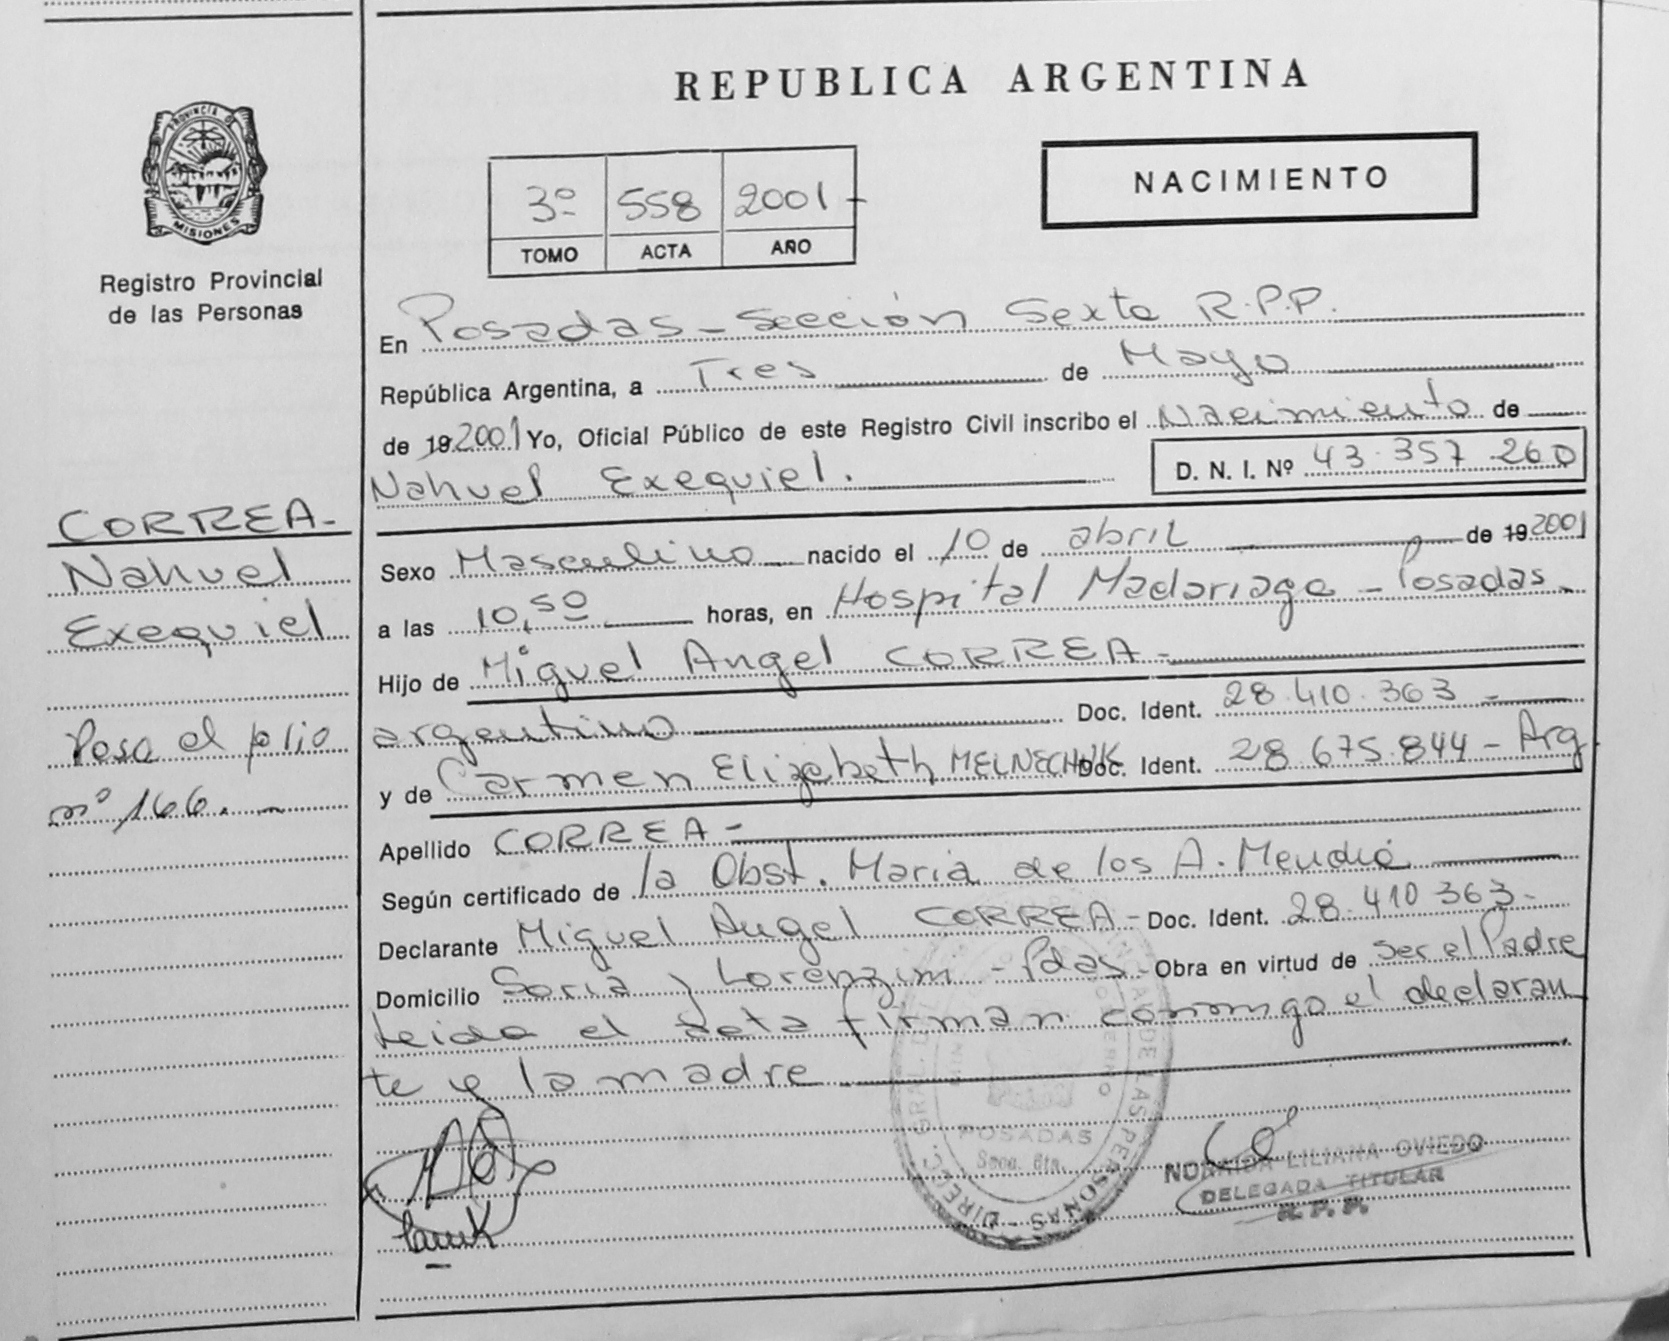 REPUBLICA ARGENTINA
PROVINCIA DE
MISIONES
Registro Provincial
de las Personas
3º 558 2001
TOMO ACTA AÑO
NACIMIENTO
En Posadas - Sección Sexta R.P.P.
República Argentina, a Tres de Mayo
de 19 2001 Yo, Oficial Público de este Registro Civil inscribo el Nacimiento de
Nahuel Exequiel. D. N. I. Nº 43.357.260
CORREA-
Nahuel
Exequiel
Pasa el folio
nº 166.
Sexo Masculino nacido el 10 de abril de 19 2001
a las 10,50 horas, en Hospital Madariaga - Posadas -
Hijo de Miguel Angel CORREA -
argentino Doc. Ident. 28.410.363 -
y de Carmen Elizabeth MELNECHUK Doc. Ident. 28.675.844 - Arg
Apellido CORREA -
Según certificado de la Obst. Maria de los A.
Declarante Miguel Angel CORREA - Doc. Ident. 28.410 363-
Domicilio Soria y Lorenzini - Pdas - Obra en virtud de ser el Padre
leida el acta firman conmigo el declaran
te y la madre
DIREC. GRAL. DE LAS PERSONAS
POSADAS
Secc. 6ta.
LILIANA OVIEDO
DELEGADA TITULAR
R. P. P.